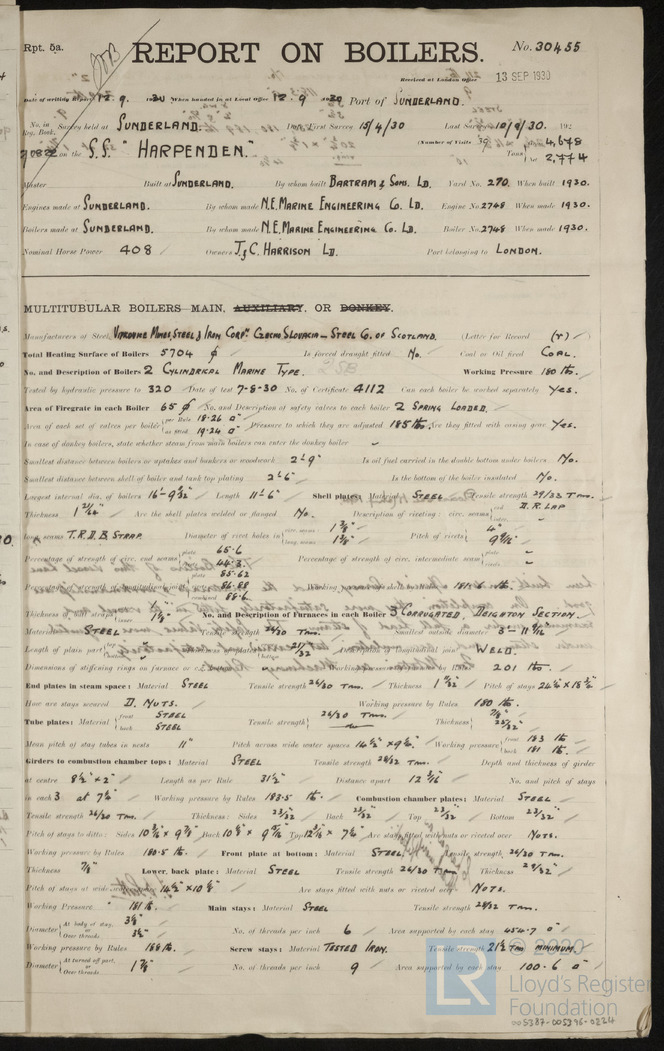 Rpt. 5a.
REPORT ON BOILERS.
No. 30455
Received at London Office
13 SEP 1930
Date of writing Report 12. 9. 1930 When handed in at Local Office 12. 9. 1930 Port of SUNDERLAND.
No. in Reg. Book. Survey held at SUNDERLAND. Date, First Survey 15/4/30 Last Survey 10/9/30. 192
(Number of Visits
on the S.S. "HARPENDEN." Tons 4,678
2,774
Master Built at SUNDERLAND. By whom built BARTRAM & SONS. LD. Yard No. 270. When built 1930.
Engines made at SUNDERLAND. By whom made N.E. MARINE ENGINEERING Co. LD. Engine No. 2748 When made 1930.
Boilers made at SUNDERLAND. By whom made N.E. MARINE ENGINEERING Co. LD. Boiler No. 2748 When made 1930.
Nominal Horse Power 408 Owners J. & C. HARRISON LD. Port belonging to LONDON.
MULTITUBULAR BOILERS MAIN, AUXILIARY, OR DONKEY.
Manufacturers of Steel VITKOVICE MINES, STEEL & IRON CORPN. CZECHO SLOVACIA - STEEL Co. OF SCOTLAND. (Letter for Record (r)
Total Heating Surface of Boilers 5704 Is forced draught fitted No. Coal or Oil fired COAL.
No. and Description of Boilers 2 CYLINDRICAL MARINE TYPE. Working Pressure 180 lb.
Tested by hydraulic pressure to 320 Date of test 7-8-30 No. of Certificate 4112 Can each boiler be worked separately YES.
Area of Firegrate in each Boiler 65 No. and Description of safety valves to each boiler 2 SPRING LOADED.
Area of each set of valves per boiler per Rule 18.26 □" as fitted 19.24 □" Pressure to which they are adjusted 185 lb. Are they fitted with easing gear YES.
In case of donkey boilers, state whether steam from main boilers can enter the donkey boiler -
Smallest distance between boilers or uptakes and bunkers or woodwork 2'-9" Is oil fuel carried in the double bottom under boilers No.
Smallest distance between shell of boiler and tank top plating 2'-6" Is the bottom of the boiler insulated No.
Largest internal dia. of boilers 16'-9 9/32" Length 11'-6" Shell plates: Material STEEL Tensile strength 29/33 TONS.
Thickness 1 21/64" Are the shell plates welded or flanged No. Description of riveting: circ. seams end D.R. LAP
inter. -
long. seams T.R.D.B. STRAP. Diameter of rivet holes in circ. seams 1 3/8" long. seams 1 3/8" Pitch of rivets 4"
Percentage of strength of circ. end seams plate 65.6 rivets 44.3 Percentage of strength of circ. intermediate seam plate - rivets -
Percentage of strength of longitudinal joint plate 85.62 rivets 86.88 combined 88.6 Working pressure of shell by Rules 181.6 lb.
Thickness of butt straps No. and Description of Furnaces in each Boiler 3 CORRUGATED DEIGHTON SECTION.
Material STEEL Tensile strength 26/30 TONS. Smallest outside diameter
Length of plain part Thickness of plates 21/32" Description of longitudinal joint WELD.
Dimensions of stiffening rings on furnace or c.c. bottom Working pressure of furnace by Rules 201 lb.
End plates in steam space: Material STEEL Tensile strength 26/30 TONS. Thickness Pitch of stays
How are stays secured D. NUTS. Working pressure by Rules 180 lb.
Tube plates: Material front STEEL back STEEL Tensile strength 26/30 TONS. Thickness 7/8" 25/32"
Mean pitch of stay tubes in nests 11" Pitch across wide water spaces Working pressure front 183 lb. back 181 lb.
Girders to combustion chamber tops: Material STEEL Tensile strength 28/32 TONS. Depth and thickness of girder
at centre 8 1/2" × 2" Length as per Rule 31 1/2" Distance apart 12 3/16" No. and pitch of stays
in each 3 at 7 1/4" Working pressure by Rules 183.5 lb. Combustion chamber plates: Material STEEL
Tensile strength 26/30 TONS. Thickness: Sides 23/32" Back 23/32" Top 23/32" Bottom 23/32"
Pitch of stays to ditto: Sides Back Top Are stays fitted with nuts or riveted over NUTS.
Working pressure by Rules 180.5 lb. Front plate at bottom: Material STEEL Tensile strength 26/30 TONS.
Thickness 7/8" Lower back plate: Material STEEL Tensile strength 26/30 TONS Thickness
Pitch of stays at wide water space Are stays fitted with nuts or riveted over NUTS.
Working Pressure 181 lb. Main stays: Material STEEL Tensile strength 28/32 TONS.
Diameter At body of stay, or Over threads No. of threads per inch 6 Area supported by each stay 454.7 □"
Working pressure by Rules 188 lb. Screw stays: Material TESTED IRON. Tensile strength 21 1/2 TONS MINIMUM.
Diameter At turned off part, or Over threads 1 7/8" No. of threads per inch 9 Area supported by each stay 100.6 □"
© 2020
LR
Lloyd's Register
Foundation
005387-005396-0224